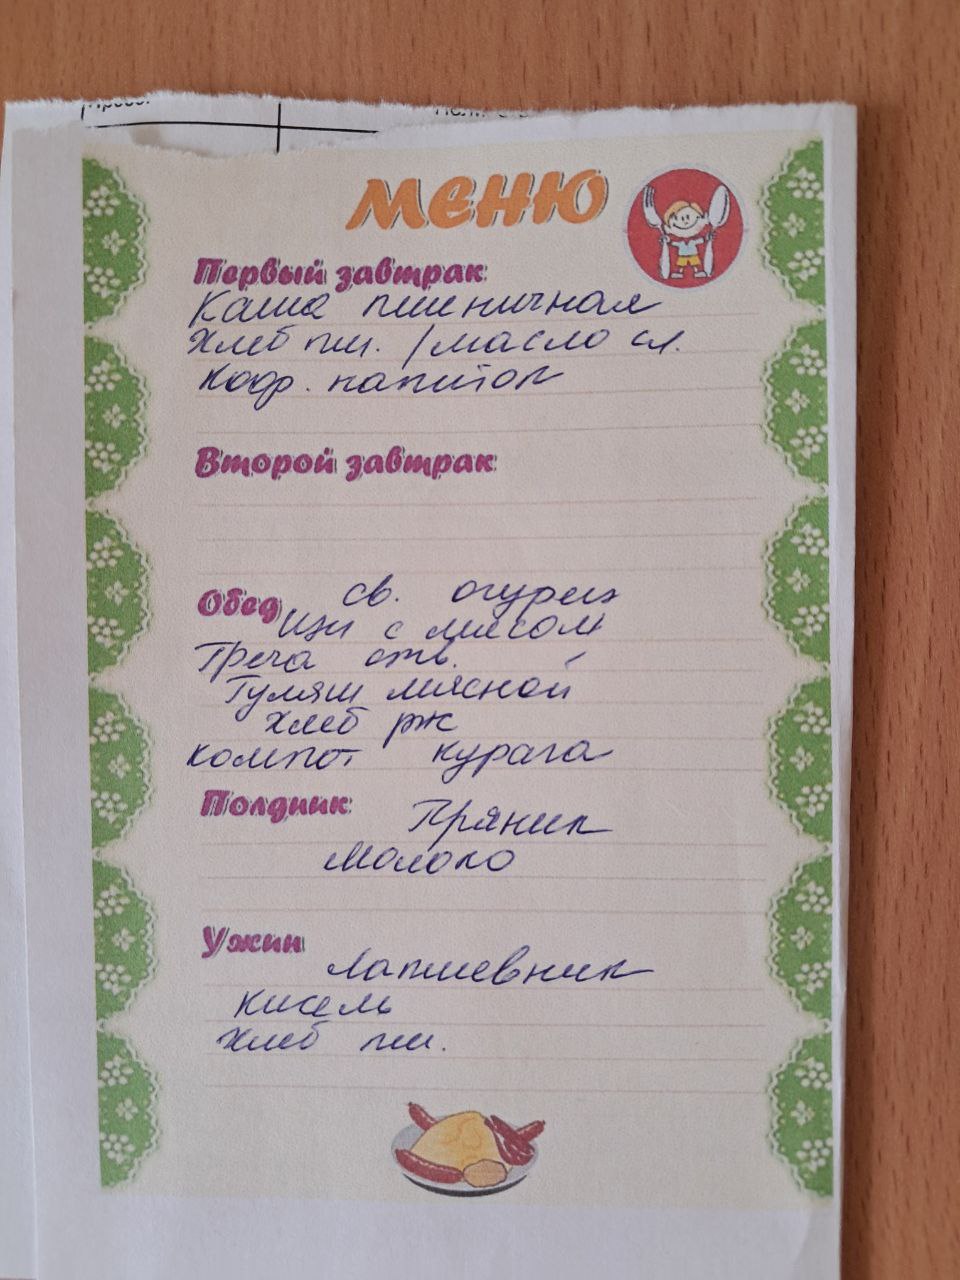 Меню
Первый завтрак:
Каша пшеничная
Хлеб пш. /масло сл.
Коф. напиток
Второй завтрак:
Обед св. огурец
Щи с мясом
Греча отв.
Гуляш мясной
Хлеб рж
Компот курага
Полдник: Пряник
Молоко
Ужин
Лапшевник
Кисель
Хлеб пш.